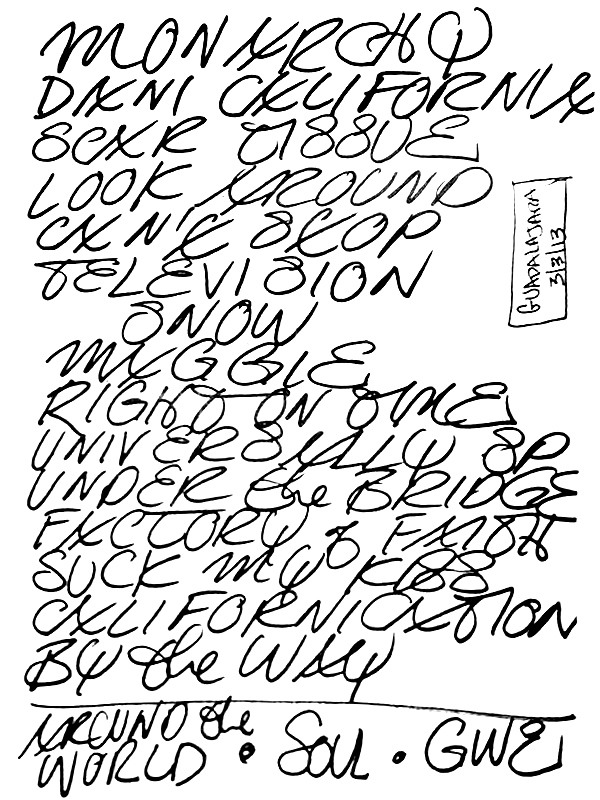 MONARCHY
DANI CALIFORNIA
SCAR TISSUE
LOOK AROUND
CAN'T STOP
TELEVISION
SNOW
MAGGIE
RIGHT ON TIME
UNIVERSALLY SP
UNDER the BRIDGE
FACTORY of FAITH
SUCK MY KISS
CALIFORNICATION
BY the WAY
AROUND the
WORLD • SOUL • GWE
GUADALAJARA
3/3/13